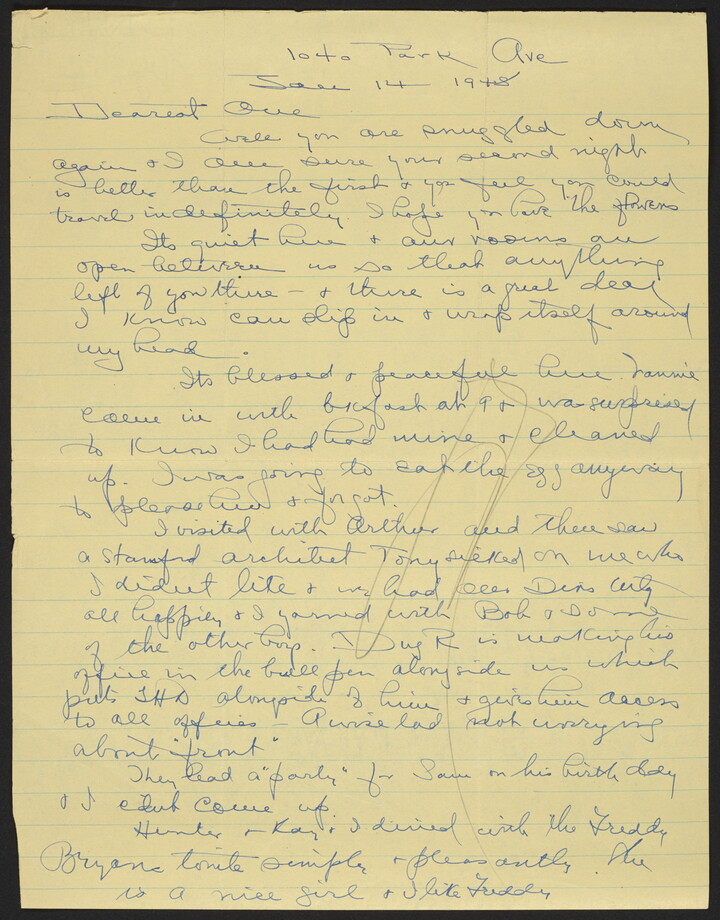 1040 Park Ave
Jan 14 1948
Dearest One
Well you are snuggled down
again & I am sure your second night
is better than the first & you feel you could
travel indefinitely. I hope you have the flowers
Its quiet here & our rooms are
open between us so that anything
left of you there – & there is a great deal
I know can slip in & wrap itself around
my head.
Its blessed & peaceful here. Fannie
came in with bkfast at 9 & was surprised
to know I had had mine & cleaned
up. I was going to eat the egg anyway
to please her & forgot.
I visited with Arthur and then saw
a Stamford architect Tony sicked on me who
I didn't like & we had
all happier & I yarned with Bob & some
of the other boys. Doug R is making his
office in the bull pen alongside us which
puts IHD alongside of him & gives him access
to all offices – A wise lad not worrying
about "front"
They had a "party" for Sam on his birthday
& I didnt come up
Hunter & Kay & I dined with the Freddy
Bryans tonite simply & pleasantly. She
is a nice girl & I like Freddy